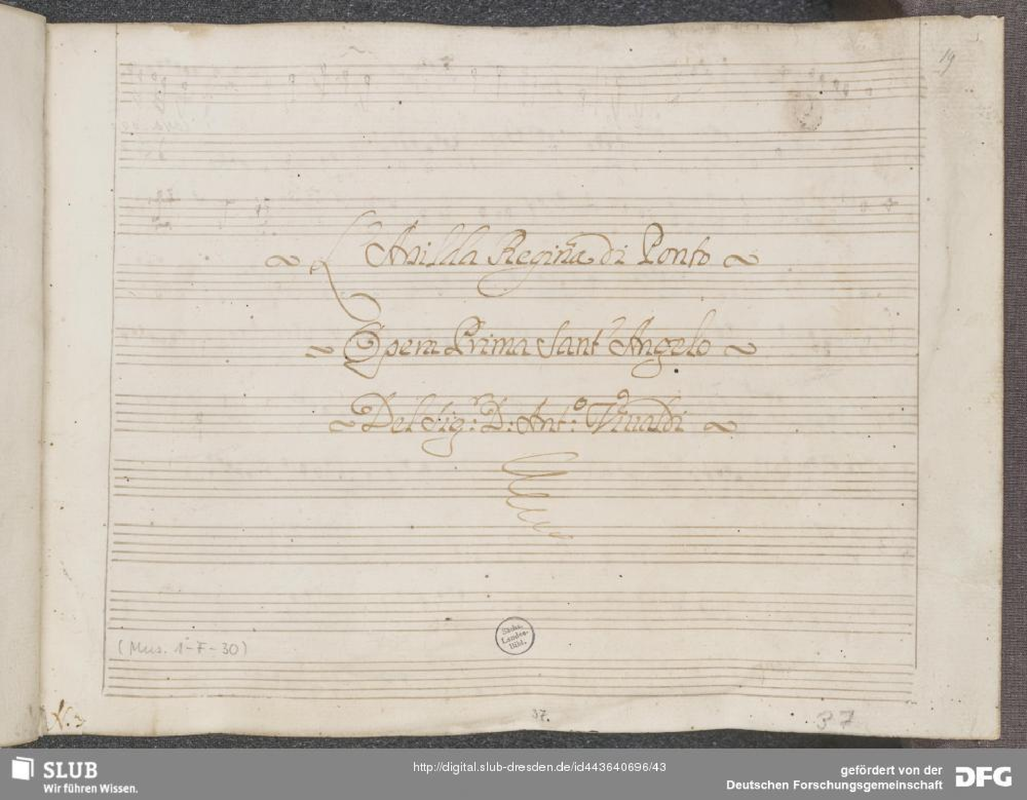 19
L'Arsilda Regina di Ponto
Opera Prima Sant' Angelo
Del Sig:r D: Ant:o Viualdi
Sächs.
Landes-
Bibl.
(Mus. 1-F-30)
N. 3
37.
37
SLUB
Wir führen Wissen.
http://digital.slub-dresden.de/id443640696/43
gefördert von der
Deutschen Forschungsgemeinschaft
DFG